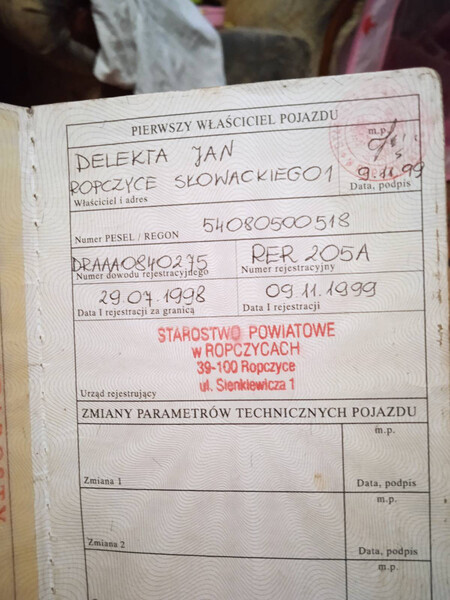 PIERWSZY WŁAŚCICIEL POJAZDU
DELEKTA JAN
m.p.
ROPCZYCE SŁOWACKIEGO 1
9.11.99
Właściciel i adres
Data, podpis
54080500518
Numer PESEL / REGON
DRAAA0840275
RER 205A
Numer dowodu rejestracyjnego
Numer rejestracyjny
29.07.1998
09.11.1999
Data I rejestracji za granicą
Data I rejestracji
STAROSTWO POWIATOWE
w ROPCZYCACH
39-100 Ropczyce
ul. Sienkiewicza 1
Urząd rejestrujący
ZMIANY PARAMETRÓW TECHNICZNYCH POJAZDU
m.p.
Zmiana 1
Data, podpis
m.p.
Zmiana 2
Data, podpis
m.p.